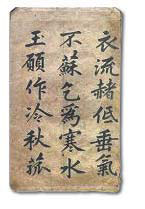 衣流赭低垂氣
不蘇乞爲寒水
玉願作冷秋菰